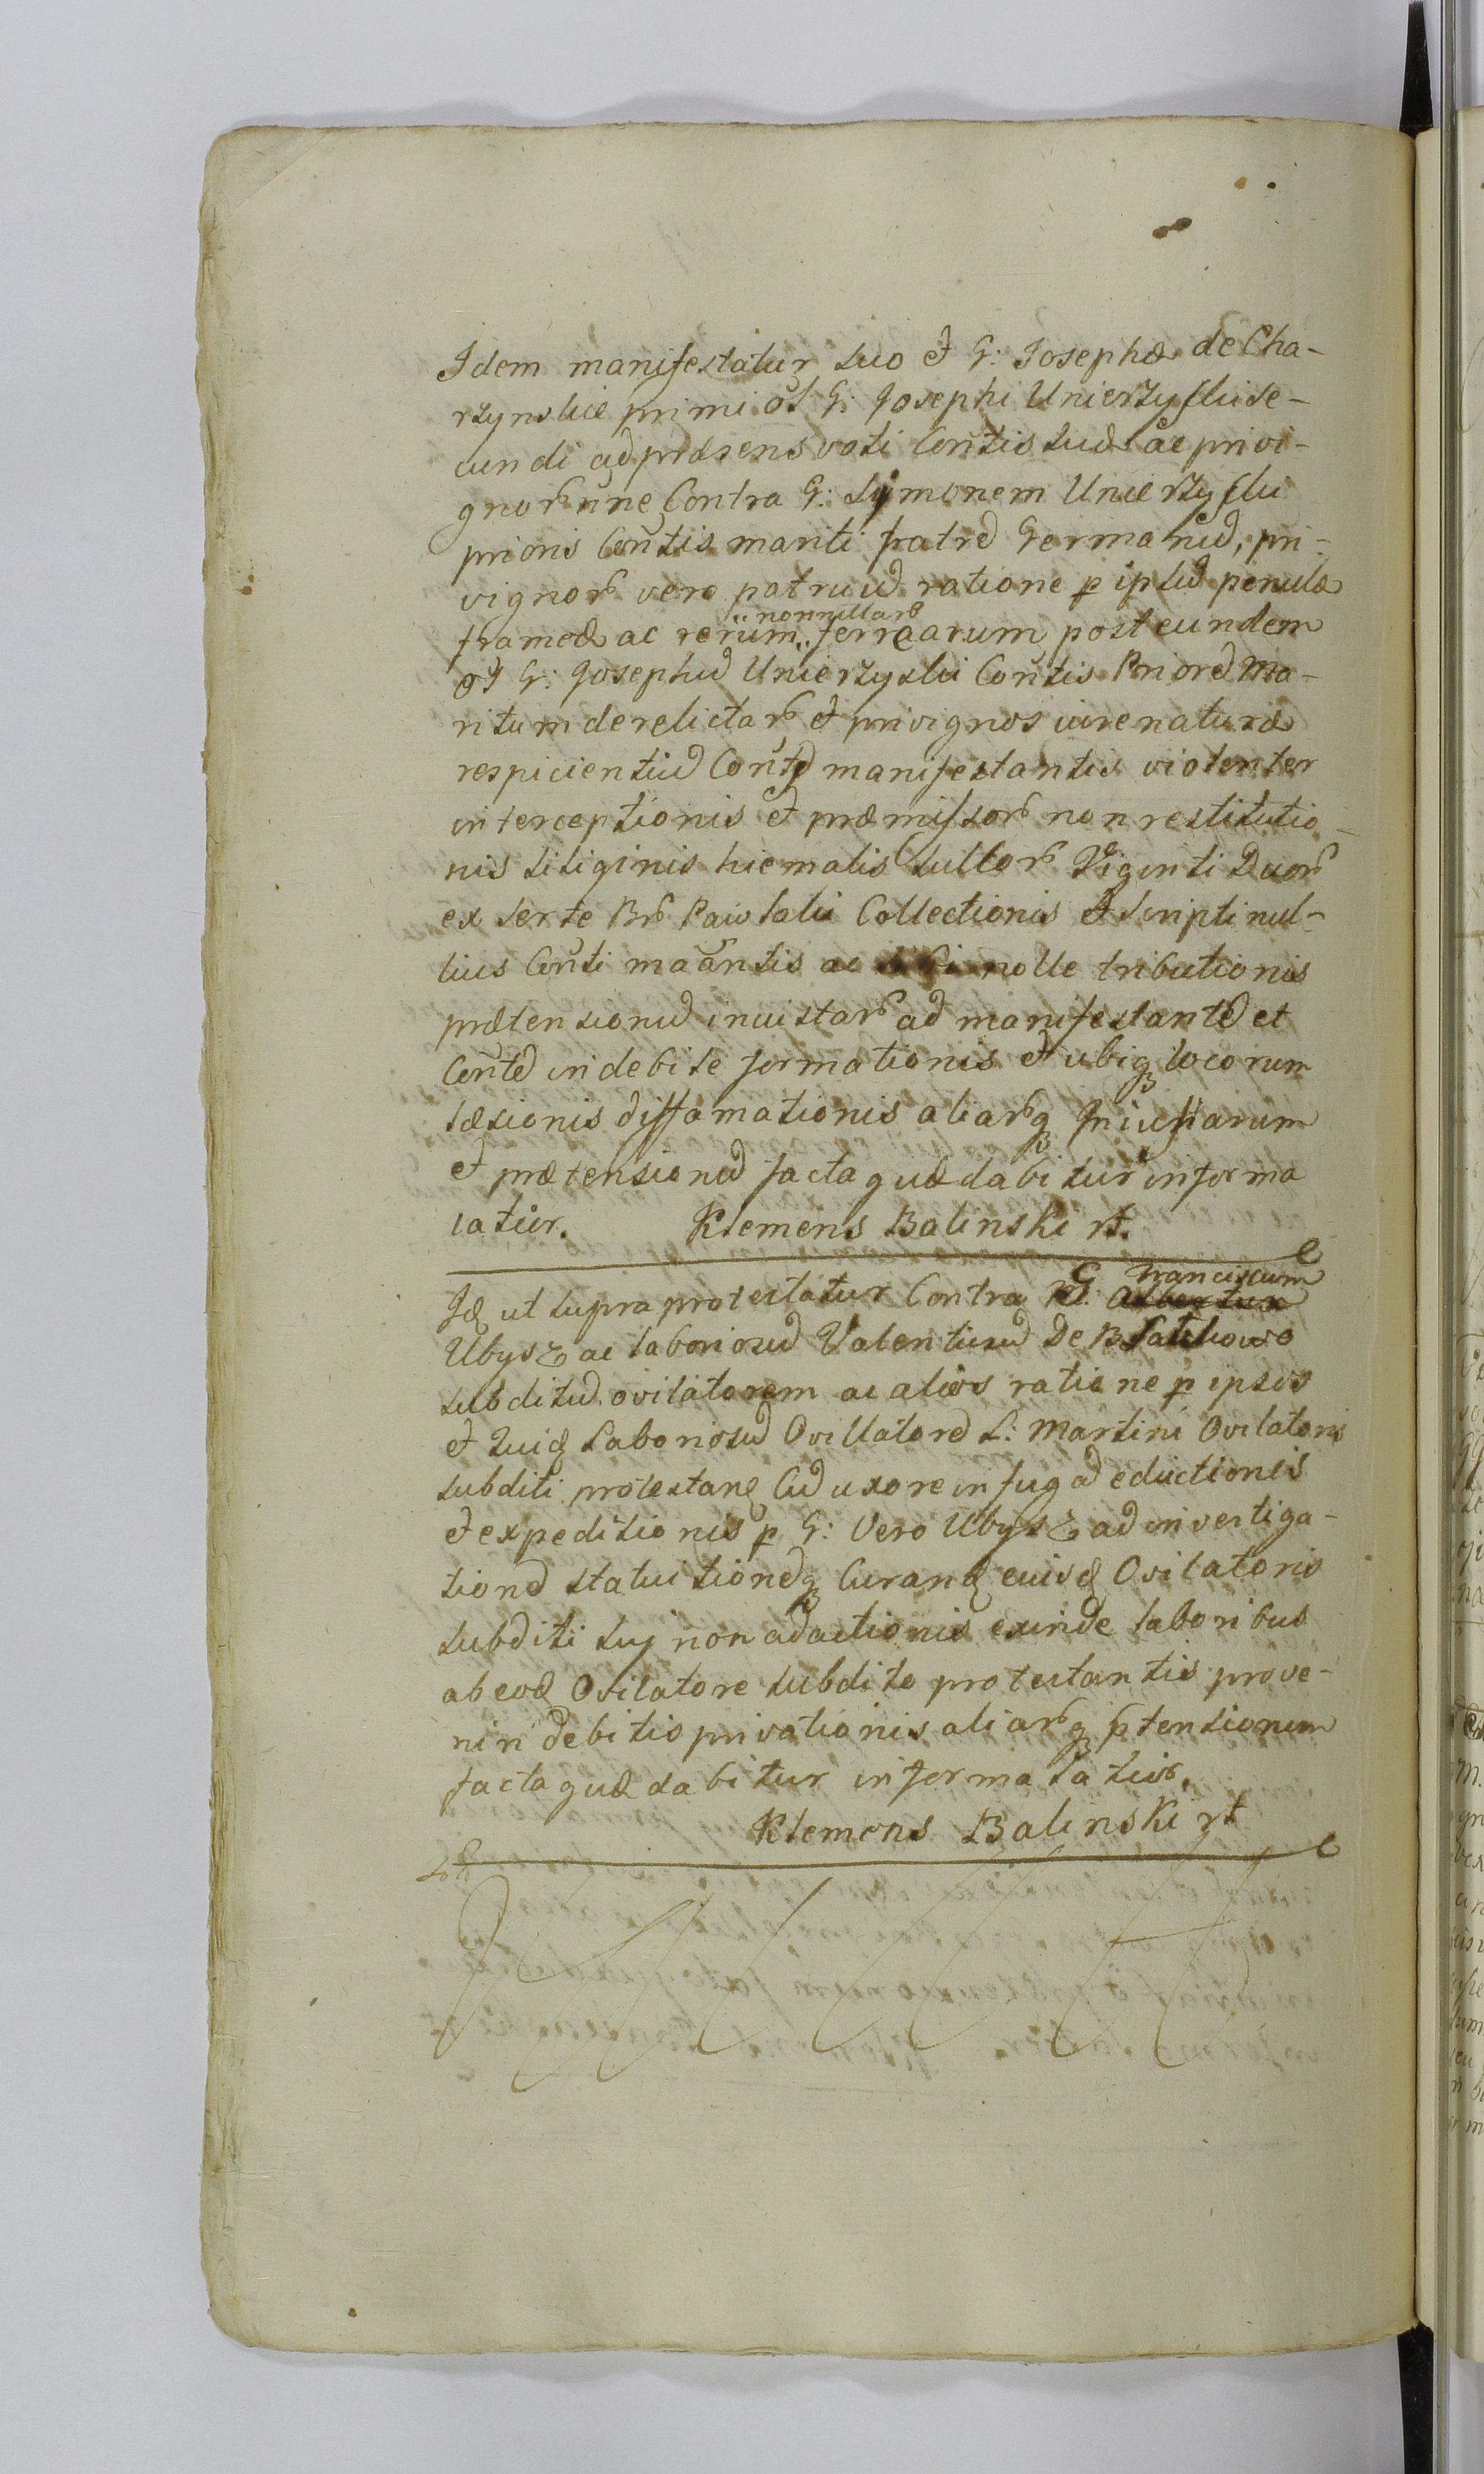 Idem manifestatur suo et G: Josephæ de Cha-
rzynskie primi ol G: Josephi Unierzyski se-
cundi ad præsens voti Contis suæ ac privi-
gnor nne Contra G: Symonem Unierzyski
prioris Contis mariti fratrem Germanum, pri-
vignor vero patruum ratione p ipsum penulæ
frameæ ac rerum nonnullar ferrearum post eundem
ol G: Josephum Unierzyski Contis Priorem Ma-
ritum derelictar et privignos iure naturæ
respicientium Contem manifestantis violenter
interceptionis et præmissor non restitutio-
nis siliginis hiemalis sullor Viginti Duor
ex serte Br Pawlalii Collectionis et scripti nul-
lius Conti maantis ac sibi nolle tributionis
prætensionum iniustar ad manifestantem et
Contem indebite formationis et ubiq locorum
læsionis diffamationis aliarq Iniuriarum
et prætensionum facta quæ dabitur informa
latior. Klemens Balinski rt.
Id ut supra protestatur Contra G: Franciscum Albertum
Ubysz ac laboriosum Valentinum De B
subditum ovilatorem ac alios ratione p ipsos
et quid Laboriosum Ovillatorem L: Martini Ovilatoris
subditi protestan Cum uxore in fugam eductionis
et expeditionis p G: Vero Ubysz ad investiga-
tionem statuitionemq Curand euisd Ovilatoris
subditi suj non adactionis exinde laboribus
ab eod Ovilatore subdito protestantis prove-
niri debitis privationis aliarq ptensionum
facta quæ dabitur informa latior.
Klemens Balinski rt